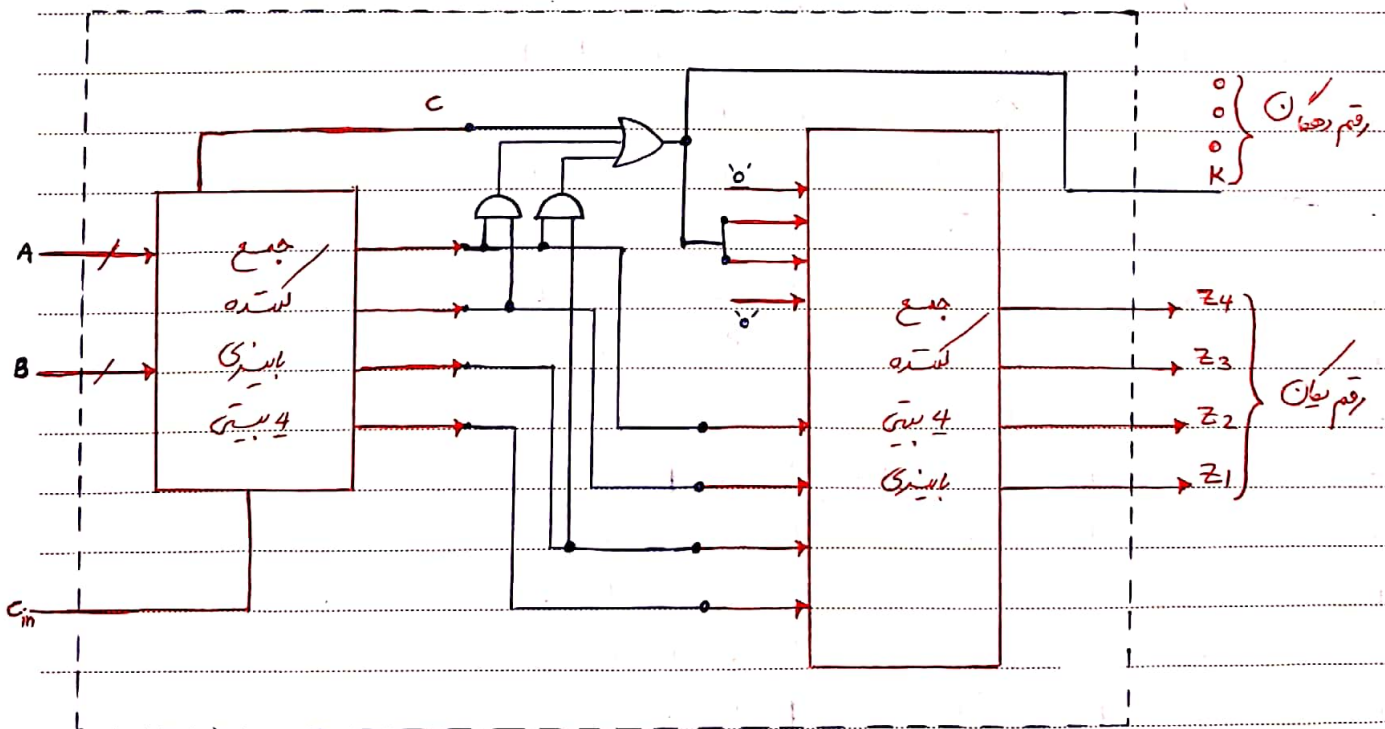 C
A
B
C in
جمع
کننده
باینری
4 بیتی
'0'
'0'
جمع
کننده
4 بیتی
باینری
0
0
0
K
رقم دهگان
Z4
Z3
Z2
Z1
رقم یکان